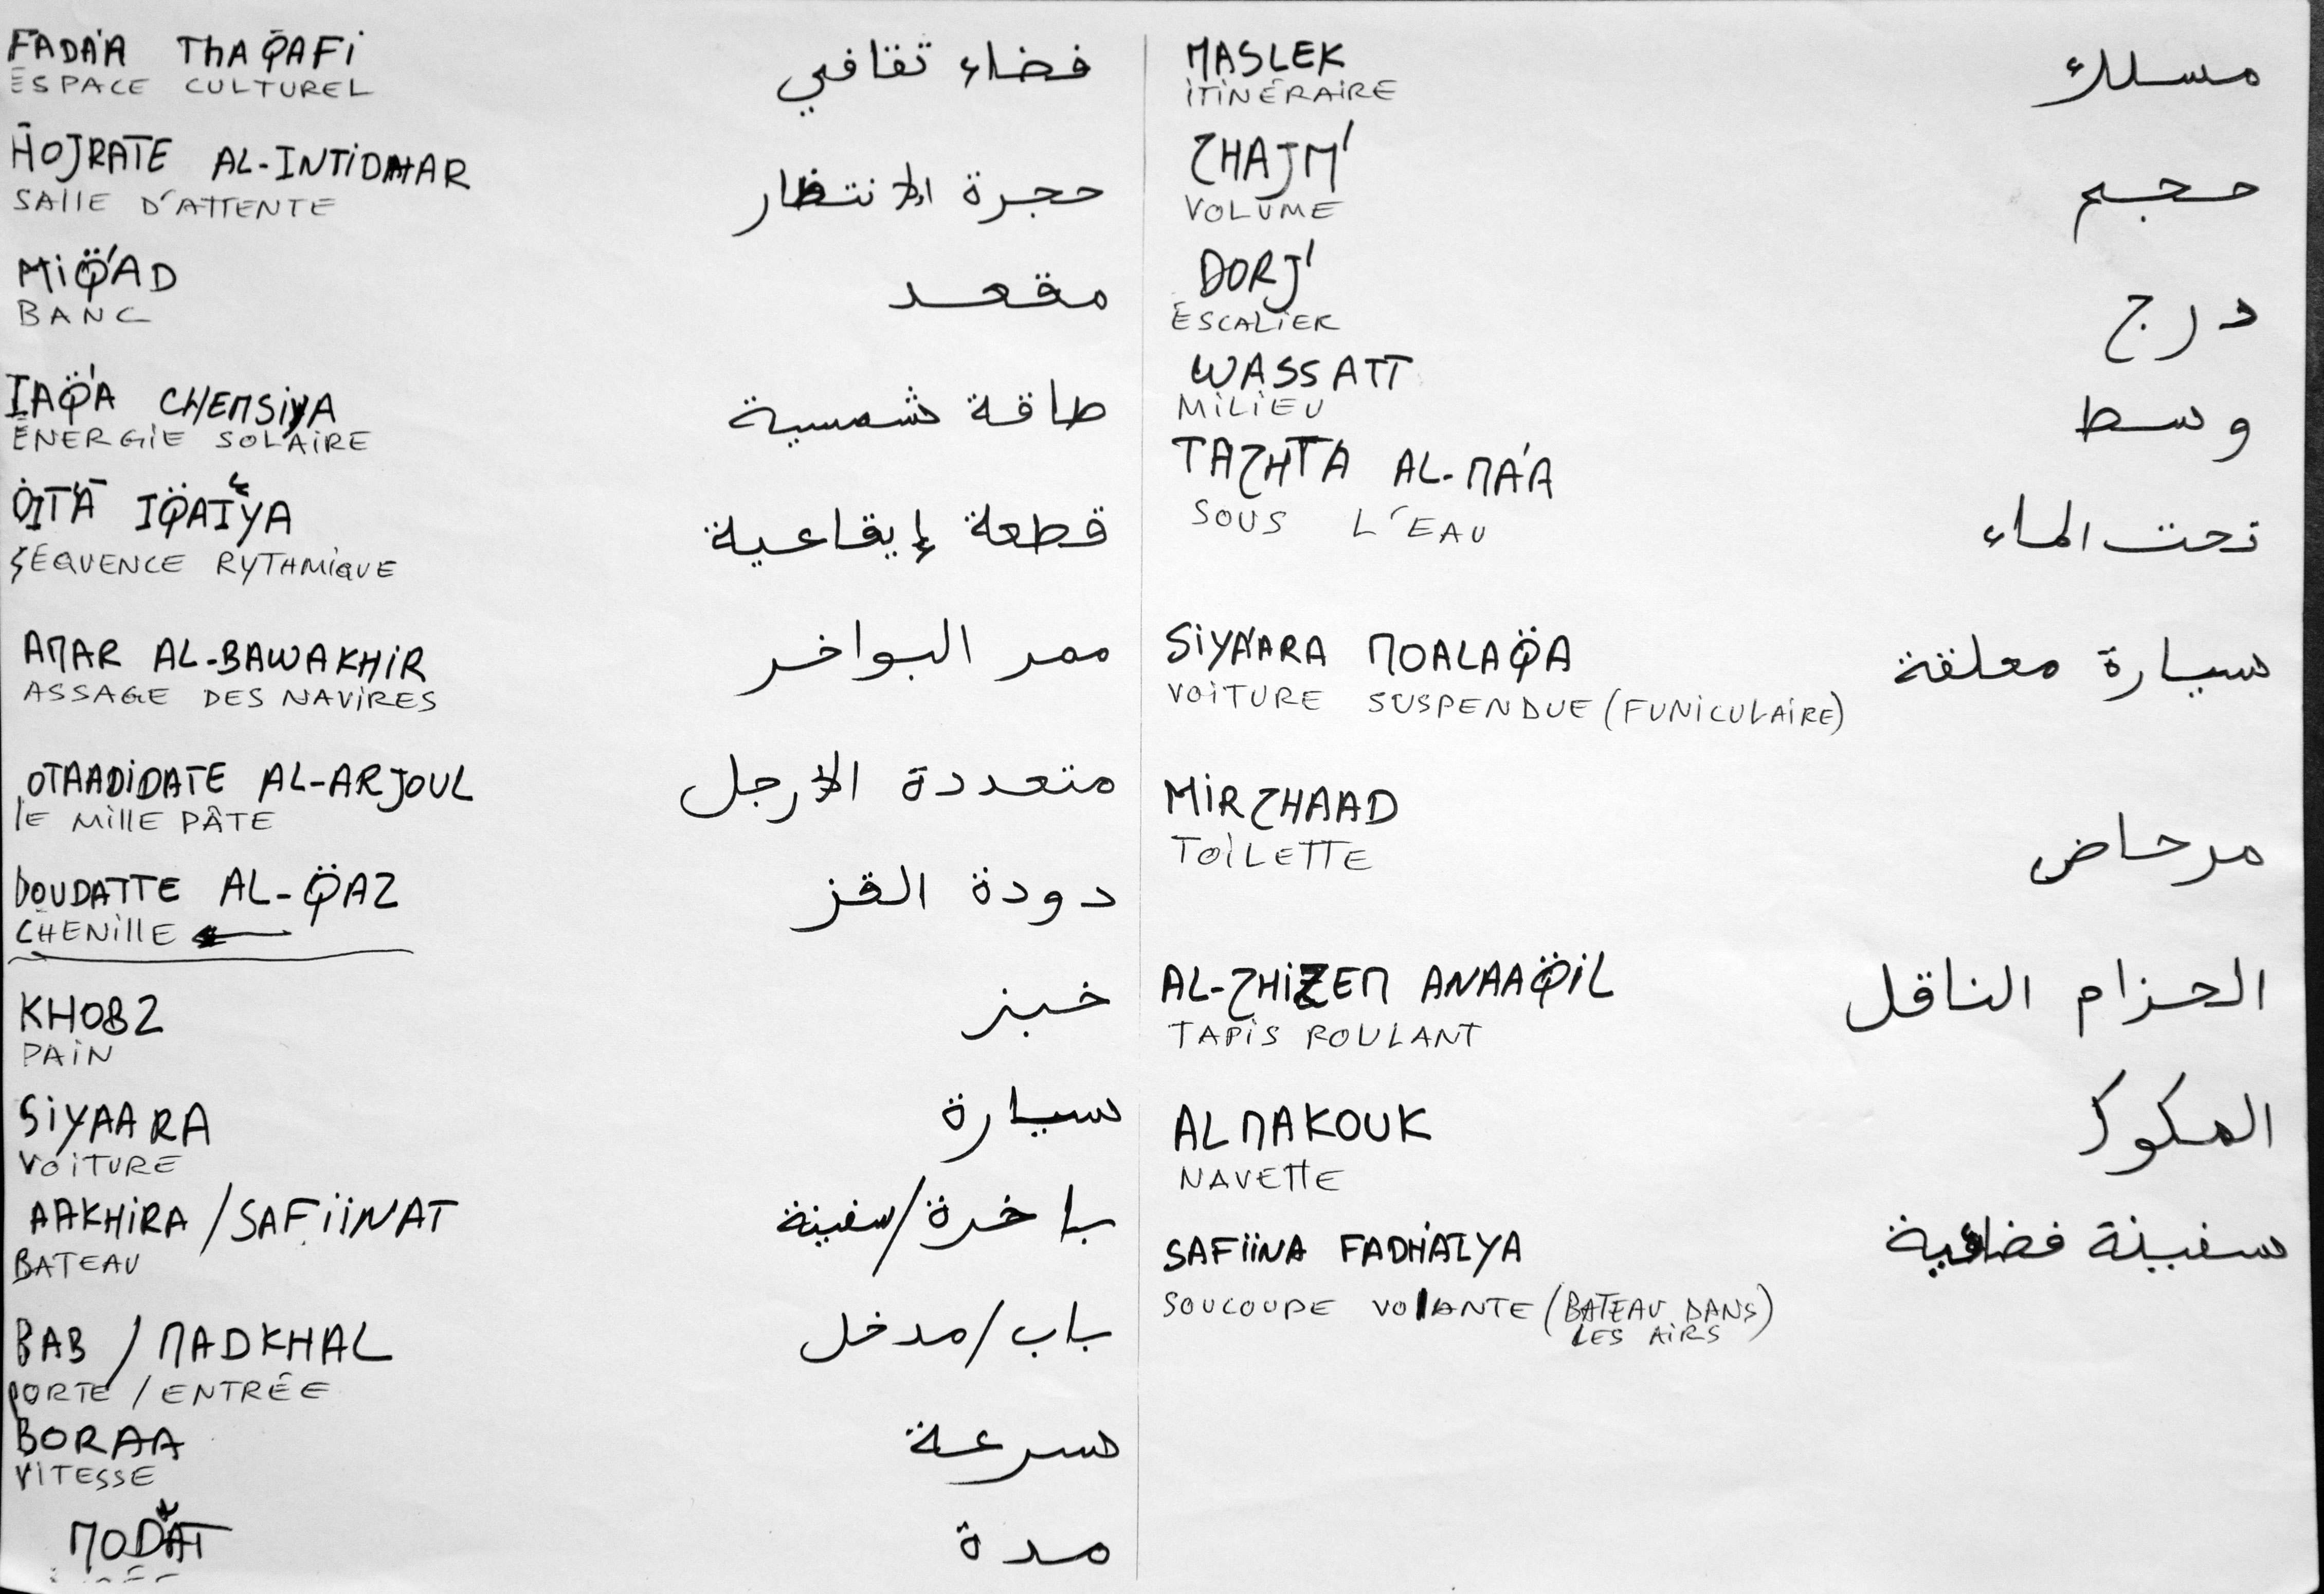 FADA'A THAQAFI فضاء ثقافي
ESPACE CULTUREL
HOJRATE AL-INTIDHAR حجرة الانتظار
SAllE D'ATTENTE
MIQ'AD مقعد
BANC
TAQ'A CHEMSIYA طاقة شمسية
ÉNERGIE SOLAIRE
QIT'A IQAIYA قطعة إيقاعية
SÉQUENCE RYTHMIQUE
AMAR AL-BAWAKHIR ممر البواخر
ASSAGE DES NAVIRES
OTAADIDATE AL-ARJOUL متعددة الارجل
lE MIllE PÂTE
DOUDATTE AL-QAZ دودة القز
CHENIllE
KHOBZ خبز
PAIN
SIYAARA سيارة
VOITURE
AAKHIRA / SAFIINAT باخرة/سفينة
BATEAU
BAB / MADKHAL باب/مدخل
PORTE / ENTRÉE
BORAA سرعة
VITESSE
MODAT مدة
MASLEK مسلك
ITINÉRAIRE
ЧHAJM' حجم
VOLUME
DORJ' درج
ESCALIER
WASSATT وسط
MILIEU
TAЧHTA AL-MA'A تحت الماء
SOUS L'EAU
SIYA'ARA MOALAQA سيارة معلقة
VOITURE SUSPENDUE (FUNICULAIRE)
MIRЧHAAD مرحاض
TOILETTE
AL-ЧHIZEM ANAAQIL الحزام الناقل
TAPIS ROULANT
ALMAKOUK المكوك
NAVETTE
SAFIINA FADHAIYA سفينة فضائية
SOUCOUPE VOlANTE (BATEAU DANS
LES AIRS)